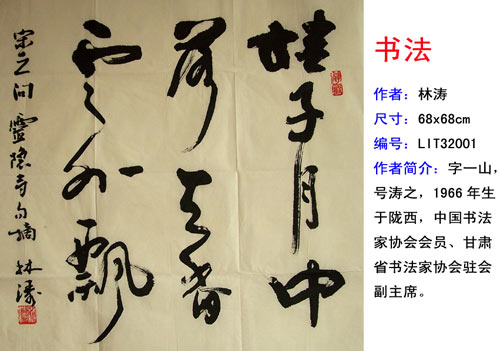 桂子月中
落天香
雲外飄
宋之问靈隐寺句摘 林涛
书法
作者：林涛
尺寸：68x68cm
编号：LIT32001
作者简介：字一山，
号涛之，1966年生
于陇西，中国书法
家协会会员、甘肃
省书法家协会驻会
副主席。